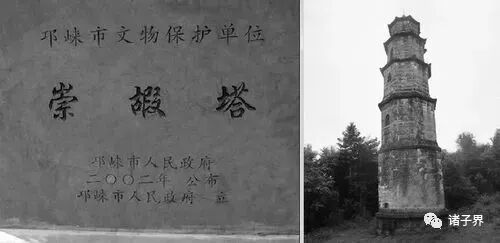 邛崃市文物保护单位
崇嘏塔
邛崃市人民政府
二〇〇二年 公布
邛崃市人民政府 立
诸子界